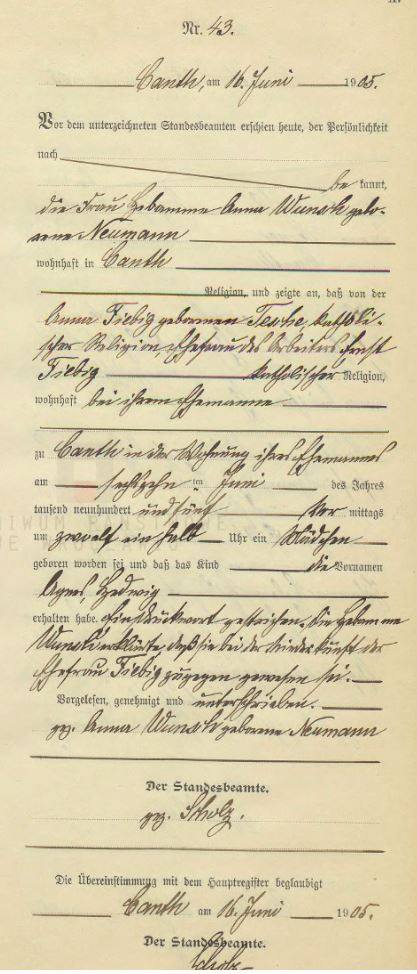 Nr. 43.
Canth, am 16. Juni 1905.
Vor dem unterzeichneten Standesbeamten erschien heute, der Persönlichkeit
nach
be kannt,
die Frau Hebamme Anna Wunsch gebo-
rene Neumann
wohnhaft in Canth
Religion, und zeigte an, daß von der
Anna Fiebig geborenen Tesche, katholi-
scher Religion Ehefrau des Arbeiters Ernst
Fiebig katholischer Religion,
wohnhaft bei ihrem Ehemanne
zu Canth in der Wohnung ihres Ehemannes
am sechszehn ten Juni des Jahres
tausend neunhundert und fünf Vor mittags
um zwölf ein halb Uhr ein Mädchen
geboren worden sei und daß das Kind die Vornamen
Agnes, Hedwig
erhalten habe. Ein Druckwort gestrichen. Die Hebamme
Wunsch erklärte, daß sie bei der Niederkunft der
Ehefrau Fiebig zugegen gewesen sei.
Vorgelesen, genehmigt und unterschrieben.
gez. Anna Wunsch geborene Neumann
Der Standesbeamte.
gez. Scholz.
Die Übereinstimmung mit dem Hauptregister beglaubigt
Canth am 16. Juni 1905.
Der Standesbeamte.
Scholz